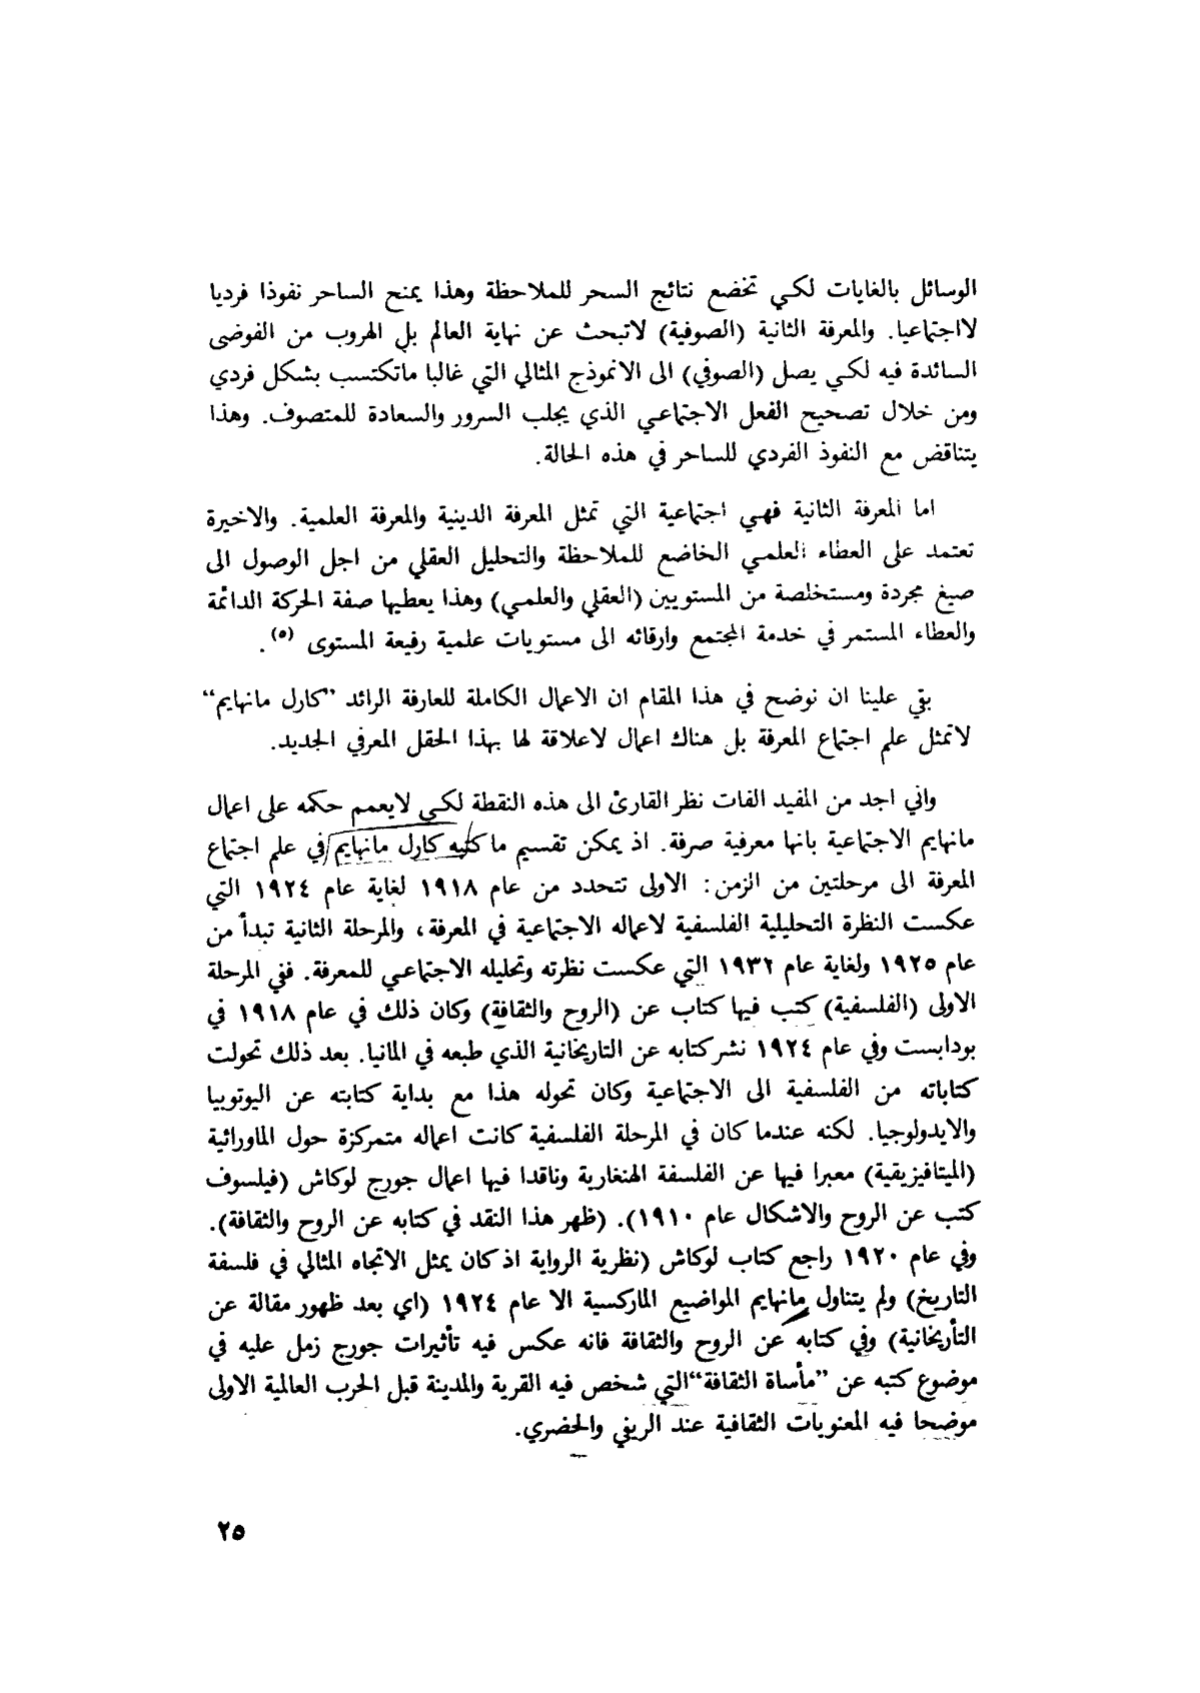 الوسائل بالغايات لكي تخضع نتائج السحر للملاحظة وهذا يمنح الساحر نفوذا فرديا
لااجتماعيا. والمعرفة الثانية (الصوفية) لاتبحث عن نهاية العالم بل الهروب من الفوضى
السائدة فيه لكي يصل (الصوفي) الى الانموذج المثالي التي غالبا ماتكتسب بشكل فردي
ومن خلال تصحيح الفعل الاجتماعي الذي يجلب السرور والسعادة للمتصوف. وهذا
يتناقض مع النفوذ الفردي للساحر في هذه الحالة.
اما المعرفة الثانية فهي اجتماعية التي تمثل المعرفة الدينية والمعرفة العلمية. والاخيرة
تعتمد على العطاء العلمي الخاضع للملاحظة والتحليل العقلي من اجل الوصول الى
صيغ مجردة ومستخلصة من المستويين (العقلي والعلمي) وهذا يعطيها صفة الحركة الدائمة
والعطاء المستمر في خدمة المجتمع وارقائه الى مستويات علمية رفيعة المستوى (٥).
بقي علينا ان نوضح في هذا المقام ان الاعمال الكاملة للعارفة الرائد ”كارل مانهايم“
لاتمثل علم اجتماع المعرفة بل هناك اعمال لاعلاقة لها بهذا الحقل المعرفي الجديد.
واني اجد من المفيد الفات نظر القارئ الى هذه النقطة لكي لايعمم حكمه على اعمال
مانهايم الاجتماعية بانها معرفية صرفة. اذ يمكن تقسيم ماكتبه كارل مانهايم في علم اجتماع
المعرفة الى مرحلتين من الزمن: الاولى تتحدد من عام ١٩١٨ لغاية عام ١٩٢٤ التي
عكست النظرة التحليلية الفلسفية لاعماله الاجتماعية في المعرفة، والمرحلة الثانية تبدأ من
عام ١٩٢٥ ولغاية عام ١٩٣٢ التي عكست نظرته وتحليله الاجتماعي للمعرفة. ففي المرحلة
الاولى (الفلسفية) كتب فيها كتاب عن (الروح والثقافة) وكان ذلك في عام ١٩١٨ في
بودابست وفي عام ١٩٢٤ نشر كتابه عن التاريخانية الذي طبعه في المانيا. بعد ذلك تحولت
كتاباته من الفلسفية الى الاجتماعية وكان تحوله هذا مع بداية كتابته عن اليوتوبيا
والايدولوجيا. لكنه عندما كان في المرحلة الفلسفية كانت اعماله متمركزة حول الماورائية
(الميتافيزيقية) معبرا فيها عن الفلسفة الهنغارية وناقدا فيها اعمال جورج لوكاش (فيلسوف
كتب عن الروح والاشكال عام ١٩١٠). (ظهر هذا النقد في كتابه عن الروح والثقافة).
وفي عام ١٩٢٠ راجع كتاب لوكاش (نظرية الرواية اذ كان يمثل الاتجاه المثالي في فلسفة
التاريخ) ولم يتناول مانهايم المواضيع الماركسية الا عام ١٩٢٤ (اي بعد ظهور مقالة عن
التأريخانية) وفي كتابه عن الروح والثقافة فانه عكس فيه تأثيرات جورج زمل عليه في
موضوع كتبه عن ”مأساة الثقافة“ التي شخص فيه القرية والمدينة قبل الحرب العالمية الاولى
موضحا فيه المعنويات الثقافية عند الريفي والحضري.
٢٥